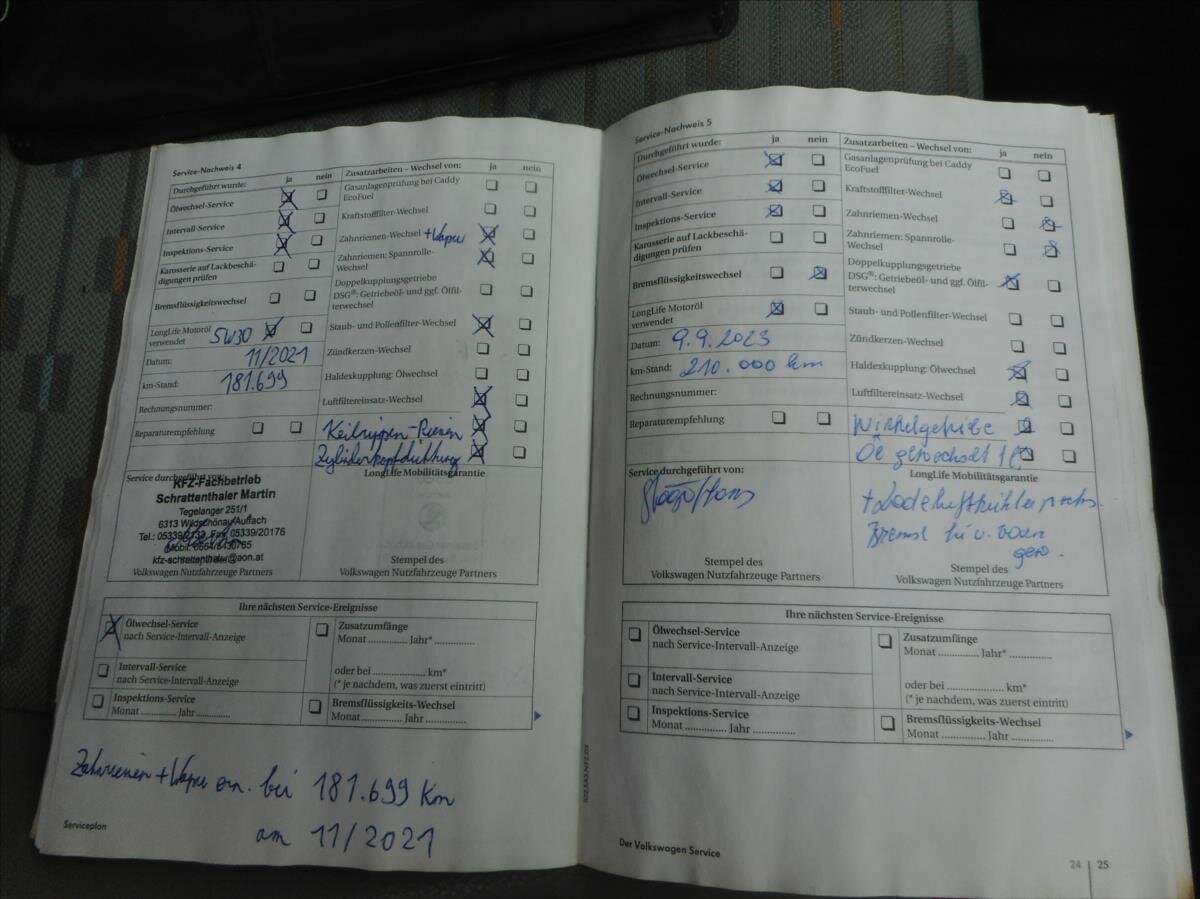 Service-Nachweis 4
Durchgeführt wurde: ja nein
Ölwechsel-Service
Intervall-Service
Inspektions-Service
Karosserie auf Lackbeschä-
digungen prüfen
Bremsflüssigkeitswechsel
LongLife Motoröl
verwendet 5W30
Datum: 11/2021
km-Stand: 181.699
Rechnungsnummer:
Reparaturempfehlung
Zusatzarbeiten – Wechsel von: ja nein
Gasanlagenprüfung bei Caddy
EcoFuel
Kraftstofffilter-Wechsel
Zahnriemen-Wechsel
Zahnriemen: Spannrolle-
Wechsel
Doppelkupplungsgetriebe
DSG®: Getriebeöl- und ggf. Ölfil-
terwechsel
Staub- und Pollenfilter-Wechsel
Zündkerzen-Wechsel
Haldexkupplung: Ölwechsel
Luftfiltereinsatz-Wechsel
Keilrippen-Riemen
Zylinderkopfdichtung
Service durchgeführt von:
KFZ-Fachbetrieb
Schrattenthaler Martin
Tegelanger 251/1
6313 Wildschönau/Auffach
Tel.: 05339/2132, Fax 05339/20176
kfz-schrattenthaler@aon.at
Volkswagen Nutzfahrzeuge Partners
LongLife Mobilitätsgarantie
Stempel des
Volkswagen Nutzfahrzeuge Partners
Ihre nächsten Service-Ereignisse
Ölwechsel-Service
nach Service-Intervall-Anzeige
Intervall-Service
nach Service-Intervall-Anzeige
Inspektions-Service
Monat ............ Jahr ...........
Zusatzumfänge
Monat ............. Jahr* .............
oder bei .................... km*
(* je nachdem, was zuerst eintritt)
Bremsflüssigkeits-Wechsel
Monat ............. Jahr .............
Zahnriemen + bei 181.699 Km
am 11/2021
Serviceplan
Service-Nachweis 5
Durchgeführt wurde: ja nein
Ölwechsel-Service
Intervall-Service
Inspektions-Service
Karosserie auf Lackbeschä-
digungen prüfen
Bremsflüssigkeitswechsel
LongLife Motoröl
verwendet
Datum: 9.9.2023
km-Stand: 210.000 km
Rechnungsnummer:
Reparaturempfehlung
Zusatzarbeiten – Wechsel von: ja nein
Gasanlagenprüfung bei Caddy
EcoFuel
Kraftstofffilter-Wechsel
Zahnriemen-Wechsel
Zahnriemen: Spannrolle-
Wechsel
Doppelkupplungsgetriebe
DSG®: Getriebeöl- und ggf. Ölfil-
terwechsel
Staub- und Pollenfilter-Wechsel
Zündkerzen-Wechsel
Haldexkupplung: Ölwechsel
Luftfiltereinsatz-Wechsel
Winkelgetriebe
Öl gewechselt
Service durchgeführt von:
Stempel des
Volkswagen Nutzfahrzeuge Partners
LongLife Mobilitätsgarantie
+ Ladeluftkühler
Stempel des
Volkswagen Nutzfahrzeuge Partners
Ihre nächsten Service-Ereignisse
Ölwechsel-Service
nach Service-Intervall-Anzeige
Intervall-Service
nach Service-Intervall-Anzeige
Inspektions-Service
Monat ............. Jahr .............
Zusatzumfänge
Monat ............. Jahr* .............
oder bei .................... km*
(* je nachdem, was zuerst eintritt)
Bremsflüssigkeits-Wechsel
Monat ............. Jahr .............
Der Volkswagen Service
24 | 25